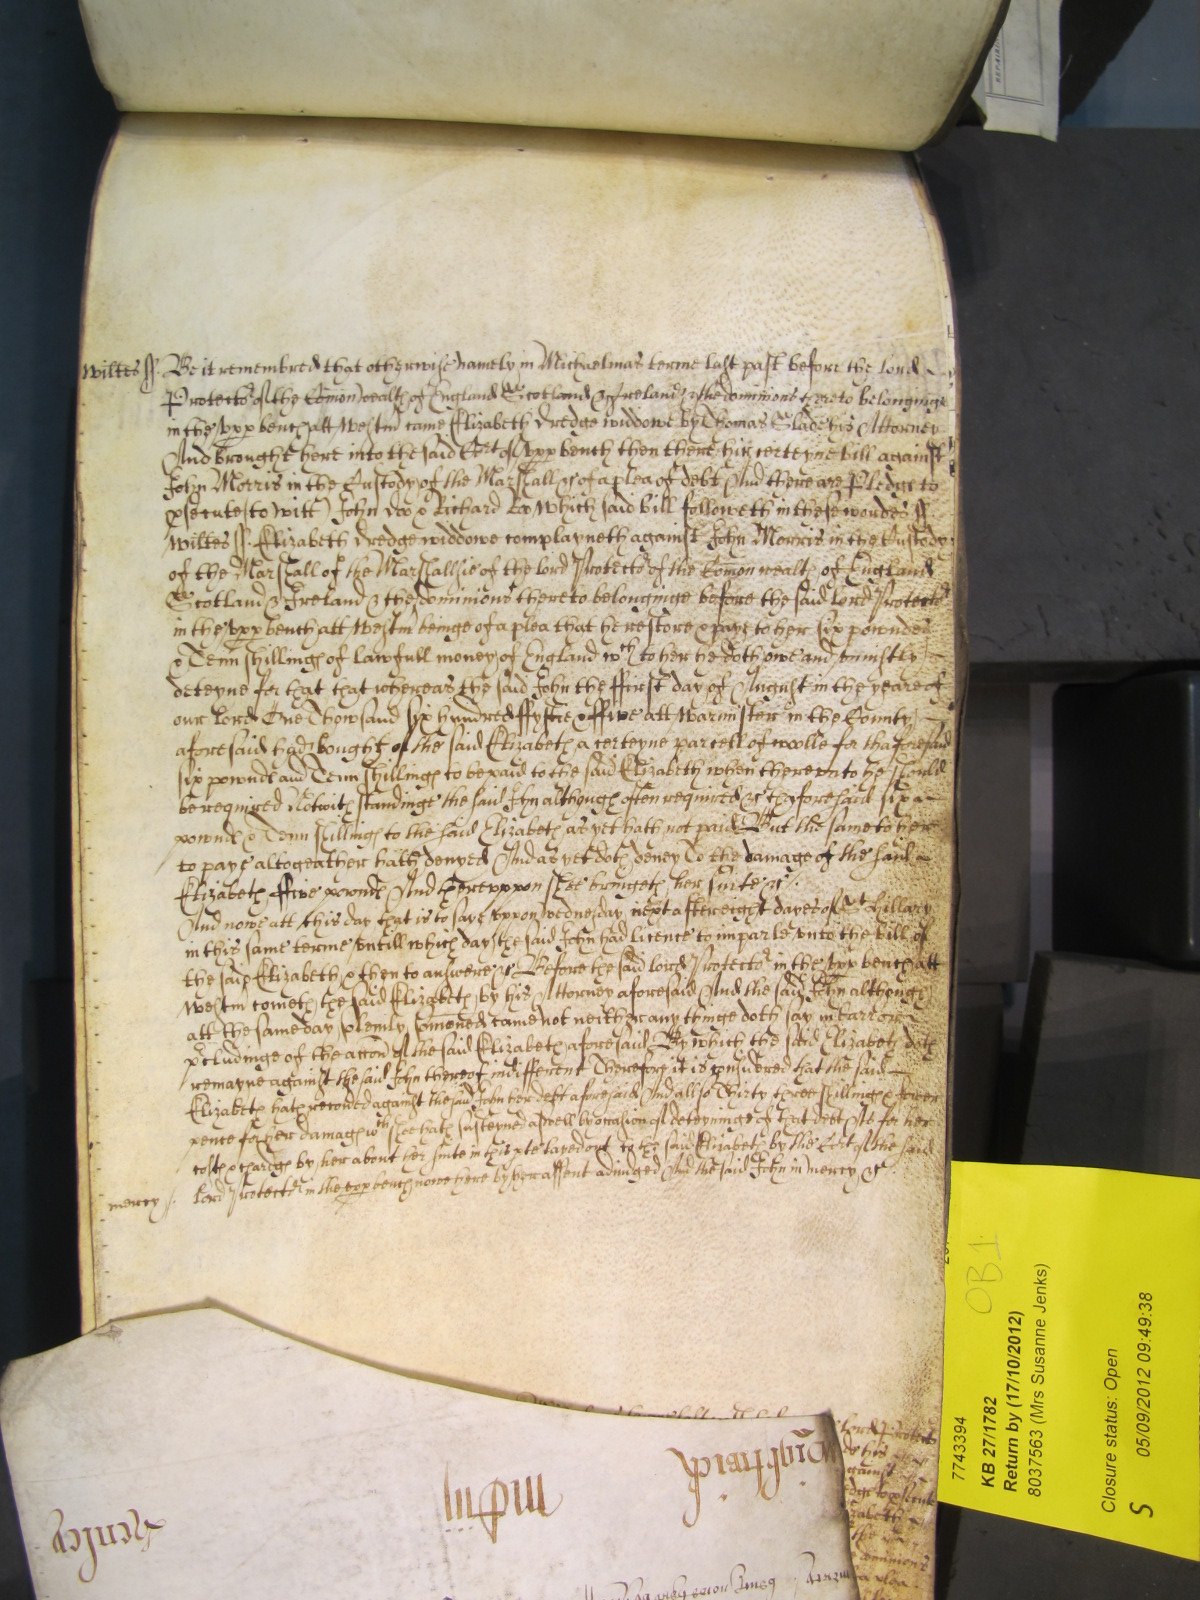 Wiltes ss. Be it remembred that otherwise namely in Michaelmas terme last past before the lord
Protector of the Comonwealth of England Scotland & Ireland & the dominions thereto belonginge
in the upp bench att Westm came Elizabeth Dredge widdowe by Thomas Slade his Attorney
And brought here into the said Cort of upp bench then there his certeyne bill against
John Morris in the Custody of the Marshall &c of a plea of debt And there are Pledge to
psecute (to witt) John Doo & Richard Roo Which said bill followeth in these wordes ss
Wiltes ss. Elizabeth Dredge widdowe complayneth against John Morris in the Custody
of the Marshall of the Marshallsie of the lord Protector of the Comonwealth of England
Scotland & Ireland & the dominions thereto belonginge before the said Lord Protector
in the upp bench att Westm beinge of a plea that he restore & paye to her six powndes
& Tenn shillings of lawfull money of England wch to her he doth owe and iniustly
deteyne for that that whereas the said John the ffirst day of August in the yeare of
our lord One Thowsand six hundred ffyftie & ffive att Warmister in the County
aforesaid had bought of the said Elizabeth a certeyne parcell of woolle for thaforesaid
six pownds and Tenn shillings to be paid to the said Elizabeth when thereunto he should
be required Notwithstandinge the said John although often required &c thaforesaid six
pownds & Tenn shillings to the said Elizabeth as yet hath not paid But the same to her
to paye altogeather hath denyed And as yet doth deney To the damage of the said
Elizabeth ffive pownds And thereuppon shee bringeth her suite &c
And nowe att this day that is to saye uppon wednesday next after eight dayes of St Hillary
in this same terme untill which day the said John had licence to imparle unto the bill of
the said Elizabeth & then to answere &c Before the said lord Protector in the upp bench att
Westm cometh the said Elizabeth by his Attorney aforesaid And the said John although
att the same day solemnly comoned came not neither any thinge doth say in barr or
pcludinge of the accon of the said Elizabeth aforesaid By which the said Elizabeth doth
remayne against the said John thereof indifferent Therefore it is considered that the said
Elizabeth hath recored against the said John her debt aforesaid And allso Thirty three shillings & fower
pence for her damages wch shee hath susteyned aswell by occasion of deteyninge of that debt As for her
costs & charges by her about her suite in that pte layed out to the said Elizabeth by the Cort of the said
mercy ss. lord Protector in the upp bench nowe here by her assent adiudged And the said John in mercy &c
henley
Wingfield
7743394
KB 27/1782
OB1
Return by (17/10/2012)
8037563 (Mrs Susanne Jenks)
Closure status: Open
S
05/09/2012 09:49:38